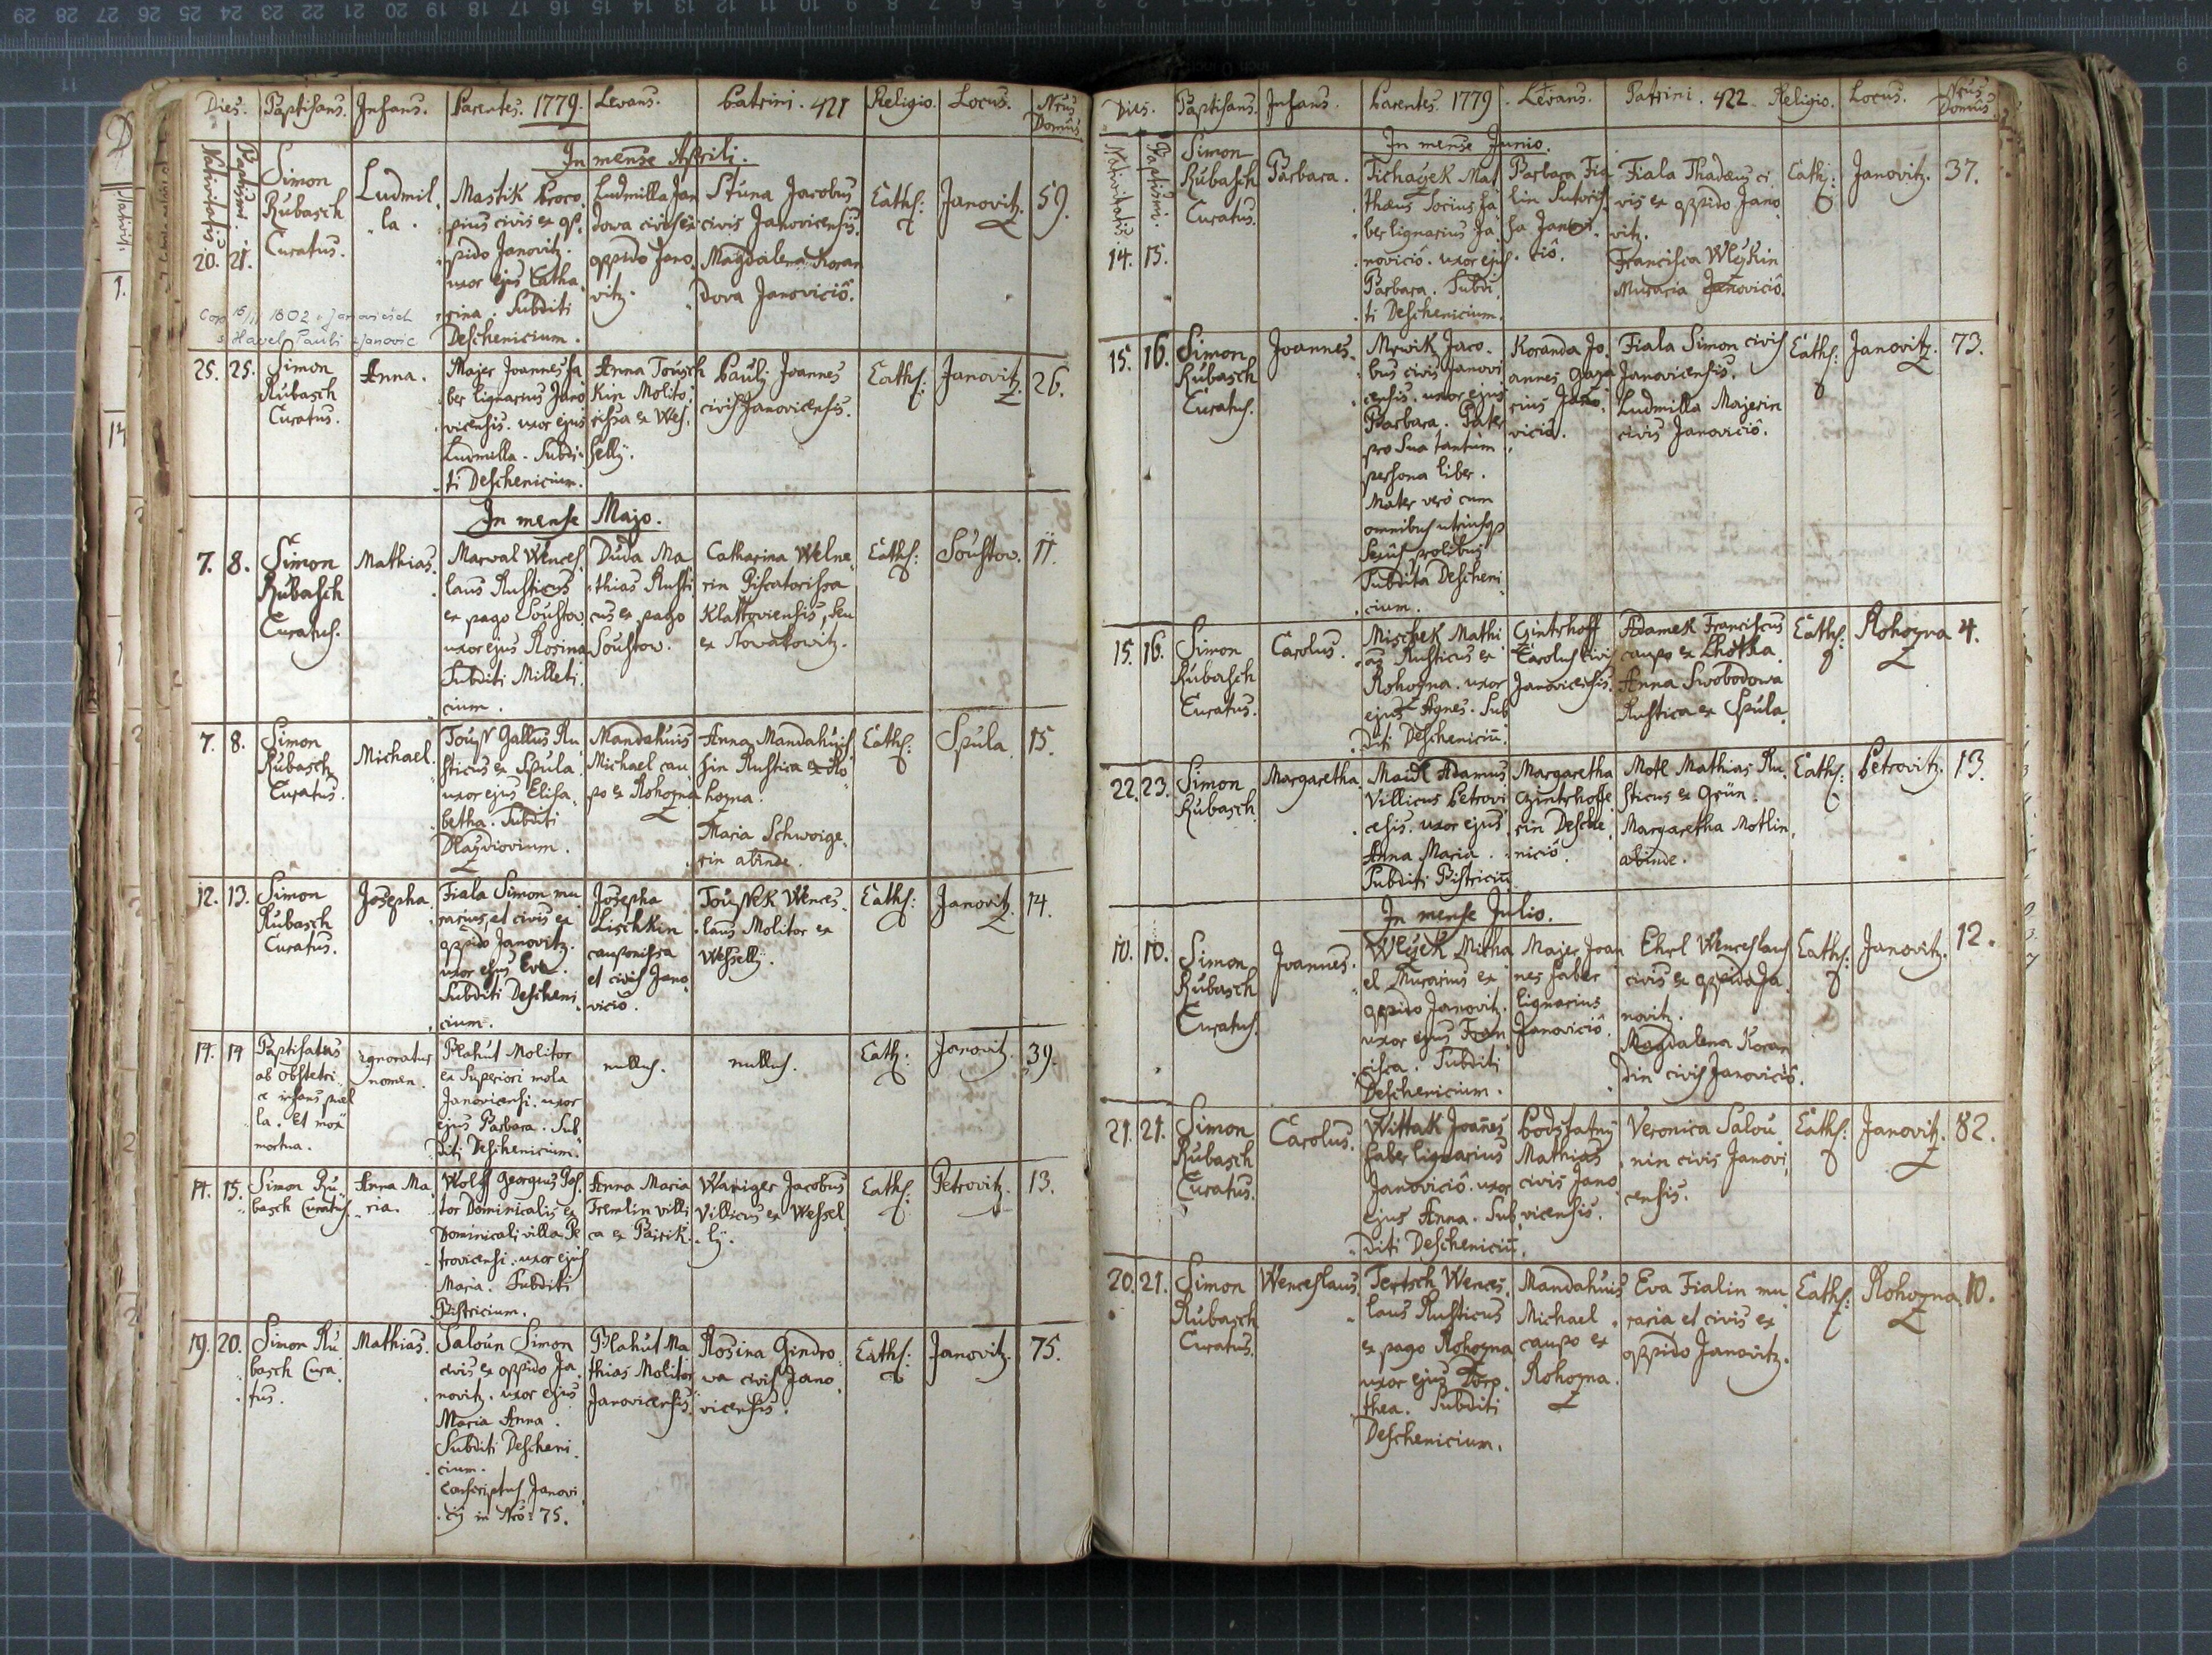 Dies. Baptisans. Infans. Parentes. 1779. Levans. Patrini. 421 Religio. Locus. Nrus Domus.
Nativitatis Baptismi
In mense Aprili.
20. 21.
Simon
Rubasch
Curatus.
Ludmil
la.
Mastik Proco
pius civis ex op
pido Janovitz.
uxor ejus Catha
rina. Subditi
Deschenicium.
Ludmilla Jan
dowa civis ex
oppido Jano
vitz.
Stuna Jacobus
civis Janovicensis.
Magdalena Koran
dova Janovicio.
Cath:
Janovitz.
59.
1802
Havel Pauli z Janovic
25. 25.
Simon
Rubasch
Curatus.
Anna.
Majer Joannes fa
ber lignarius Jano
vicensis. uxor ejus
Ludmilla. Subdi
ti Deschenicium.
Anna Tousch
kin Molito
rissa ex Wes
selly.
Pauli Joannes
civis Janovicensis.
Cath:
Janovitz.
26.
In mense Majo.
7. 8.
Simon
Rubasch
Curatus.
Mathias.
Marval Wences
laus Rusticus
ex pago Soustow
uxor ejus Rosina
Subditi Milleti
cium.
Duda Ma
thias Rusti
cus ex pago
Soustow.
Catharina Welne
rin Piscatorissa
Klattoviensis, seu
ex Novakovitz.
Cath:
Soustow.
11.
7. 8.
Simon
Rubasch
Curatus.
Michael.
Gallus Ru
sticus ex Spula
uxor ejus Elisa
betha. Subditi
Dlazdiovium.
Mandahuis
Michael cau
po ex Rohozna
Anna Mandahuis
sin Rustica ex Ro
hozna.
Maria Schwoige
rin abinde.
Cath:
Spula
15.
12. 13.
Simon
Rubasch
Curatus.
Josepha.
Fiala Simon mu
rarius, et civis ex
oppido Janovitz.
uxor ejus Eva.
Subditi Descheni
cium.
Josepha
Lischkin
cauponissa
et civis Jano
vicio.
Wences
laus Molitor ex
Wesselly.
Cath:
Janovitz.
14.
14. 14
Baptisatus
ab obstetri
ce infans puel
la. et mox
mortua.
Ignoratur
nomen.
Blahut Molitor
ex Superiori mola
Janovicensi. uxor
ejus Barbara. Sub
diti Deschenicium.
nullus.
nullus.
Cath:
Janovitz.
39.
14. 15.
Simon Ru
basch Curatus.
Anna Ma
ria.
Wolf Georgius Pas
tor Dominicalis ex
Dominicali villa Pe
trovicensi. uxor ejus
Maria. Subditi
Bistricium.
Anna Maria
Tremlin villi
ca ex
Waniger Jacobus
Villicus ex Wessel
ly.
Cath:
Petrovitz.
13.
19. 20.
Simon Ru
basch Cura
tus.
Mathias.
Saloun Simon
civis ex oppido Ja
novitz. uxor ejus
Maria Anna.
Subditi Descheni
cium.
Conscriptus Janovi
cij in Nro: 75.
Blahut Ma
thias Molitor
Janovicensis.
Rosina Gindro
wa civis Jano
vicensis.
Cath:
Janovitz.
75.
Dies. Baptisans. Infans. Parentes. 1779. Levans. Patrini. 422. Religio. Locus. Nrus Domus.
Nativitatis Baptismi.
In mense Junio.
14. 15.
Simon
Rubasch
Curatus.
Barbara.
Tichaczek Mat
thaeus Socius fa
ber lignarius Ja
novicio. uxor ejus
Barbara. Subdi
ti Deschenicium.
Barbara Fia
lin Sutoris
sa Janovi
cio.
Fiala Thadaeus ci
vis ex oppido Jano
vitz.
Francisca Wlczkin
Muraria Janovicio.
Cath:
Janovitz.
37.
15. 16.
Simon
Rubasch
Curatus.
Joannes.
Mrwik Jaco
bus civis Janovi
censis. uxor ejus
Barbara. Pater
pro Sua tantum
persona liber.
Mater vero cum
omnibus utriusq
Sexus prolibus
Subdita Descheni
cium.
Koranda Jo
annes
rius Jano
vicio.
Fiala Simon civis
Janovicensis.
Ludmilla Majerin
civis Janovicio.
Cath:
Janovitz.
73.
15. 16.
Simon
Rubasch
Curatus.
Carolus.
Mischek Mathi
as Rusticus ex
Rohozna. uxor
ejus Agnes. Sub
diti Descheniciu.
Czintrhoff
Carolus civis
Janovicensis.
Adamek Franciscus
caupo ex Lhotka.
Anna Swobodowa
Rustica ex Spula.
Cath:
Rohozna
4.
22. 23.
Simon
Rubasch
Margaretha.
Maidl Adamus
Villicus Petrovi
cesis. uxor ejus
Anna Maria.
Subditi Bistriciu.
Margaretha
Czintrhoffe
rin Desche
nicio.
Motl Mathias Ru
sticus ex Grün.
Margaretha Motlin
abinde.
Cath:
Petrovitz.
13.
In mense Julio.
10. 10.
Simon
Rubasch
Curatus.
Joannes.
Wlczek Micha
el Murarius ex
oppido Janovitz.
uxor ejus Fran
cisca. Subditi
Deschenicium.
Majer Joan
nes faber
lignarius
Janovicio.
Ehrl Wenceslaus
civis ex oppido Ja
novitz.
Magdalena Koran
din civis Janovicio.
Cath:
Janovitz.
12.
21. 21.
Simon
Rubasch
Curatus.
Carolus.
Wittak Joañes
faber lignarius
Janovicio. uxor
ejus Anna. Sub
diti Descheniciu.
Podsfatny
Mathias
civis Jano
vicensis.
Veronica Salou
nin civis Janovi
censis.
Cath:
Janovitz.
82.
20. 21.
Simon
Rubasch
Curatus.
Wenceslaus.
Tertsch Wences
laus Rusticus
ex pago Rohozna
uxor ejus Doro
thea. Subditi
Deschenicium.
Mandahuis
Michael
caupo ex
Rohozna.
Eva Fialin mu
raria et civis ex
oppido Janovitz.
Cath:
Rohozna
10.